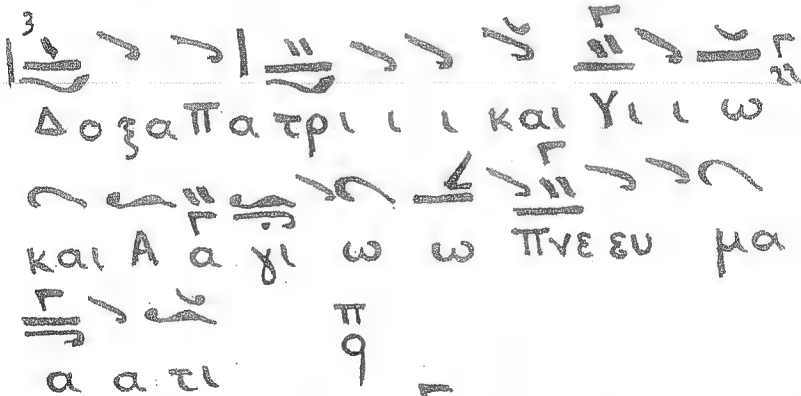 Δο ξα Πα τρι ι ι και Υι ι ω
και Α α γι ω ω πνε ευ μα
α α τι π